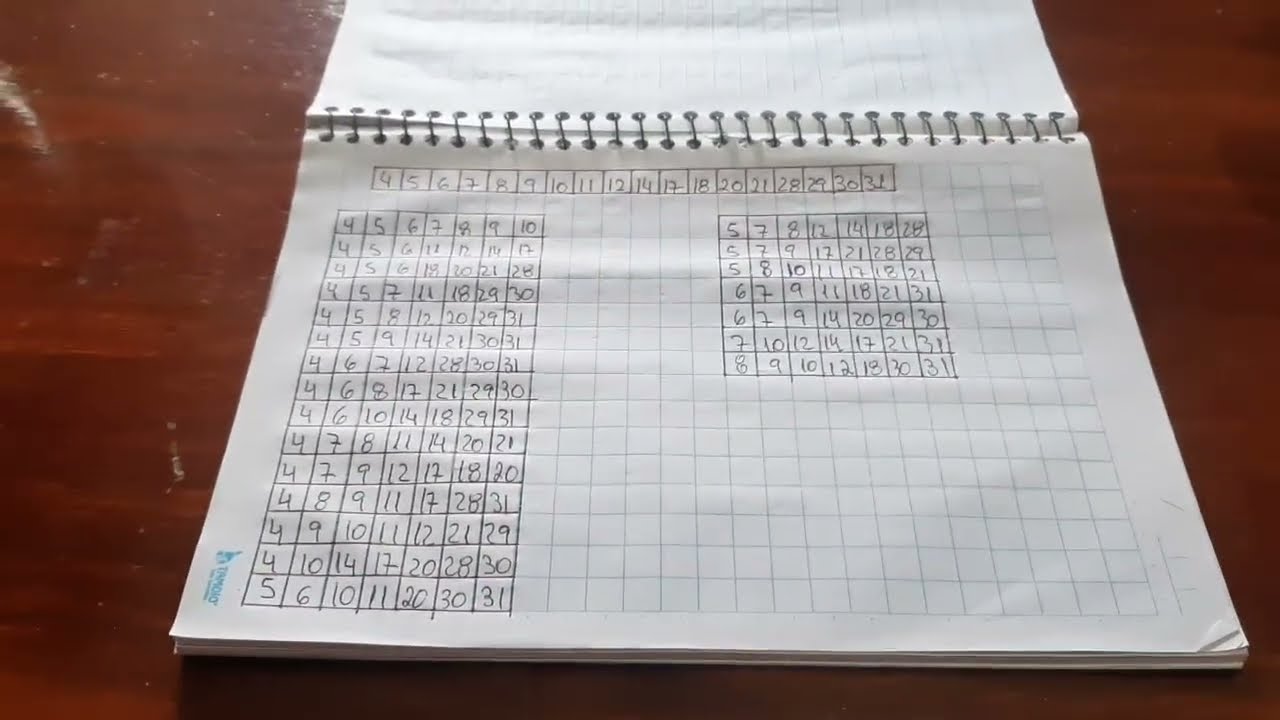 4 5 6 7 8 9 10 11 12 14 17 18 20 21 28 29 30 31
4 5 6 7 8 9 10
4 5 6 11 12 14 17
4 5 6 18 20 21 28
4 5 7 11 18 29 30
4 5 8 12 20 29 31
4 5 9 14 21 30 31
4 6 7 12 28 30 31
4 6 8 17 21 29 30
4 6 10 14 18 29 31
4 7 8 11 14 20 21
4 7 9 12 17 18 20
4 8 9 11 17 28 31
4 9 10 11 12 21 29
4 10 14 17 20 28 30
5 6 10 11 20 30 31
5 7 8 12 14 18 28
5 7 9 17 21 28 29
5 8 10 11 17 18 21
6 7 9 11 18 21 31
6 7 9 14 20 29 30
7 10 12 14 17 21 31
8 9 10 12 18 30 31
TAMOIO